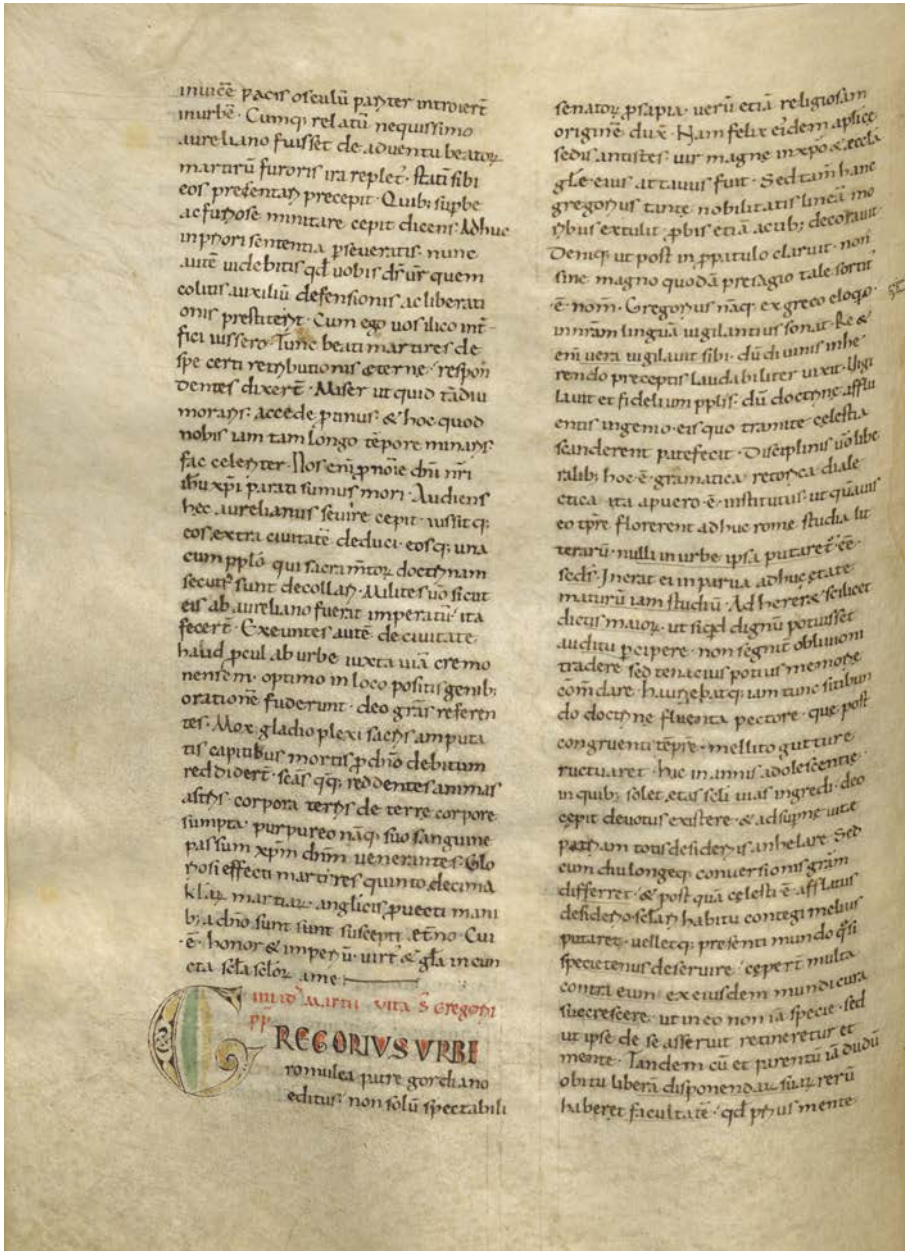 inuicē pacis osculū pariter introiert̄
inurbē · Cumq; relatū nequissimo
aureliano fuisset de aduentu beatoꝝ
martirū furoris ira replet᾽ · statī sibi
eos presentari precepit · Quib; supbe
ac furiose minitare cepit dicens · Adhuc
inpriori sententia pseueratis · nunc
autē uidebitis qđ uobis dr̄ ur̄ quem
colitis auxiliū defensionis ac liberati
onis prestiterit · Cum ego uos ilico int̄
fici iussero · Tunc beati martires de
spe certi retributionis æterne · respon
dentes dixert̄ · Miser ut quid tādiu
moraris · accede ꝓpinus · & hoc quod
nobis iam tam longo tēpore minaris ·
fac celeriter · Nos eni ꝓ noīe dnī nrī
ihū xp̄i parati sumus mori · Audiens
hec aurelianus seuire cepit · iussitq;
eos extra ciuitatē deduci · eosq; una
cum pplō qui sacram̄toꝝ doctrinam
secuti sunt decollari · Milites uō sicut
eis ab aureliano fuerat imperatū · ita
fecert̄ · Exeuntes autē de ciuitate
haud ꝓcul ab urbe iuxta uiā cremo
nensem · optimo in loco positis genib;
orationē fuderunt · deo grās referen
tes · Mox gladio plexi sacris amputa
tis capitibus mortis ꝓ dnō debitum
reddidert̄ · scās qq; reddentes animas
astris · corpora terris de terre corpore
sumpta · purpureo nāq; suo sanguine
passum xpm̄ dnm̄ uenerantes · Glo
riosi effecti martires quinto decimā
kƚaꝝ martiaꝝ anglicis ꝓuecti mani
b; a dnō sunt sunt suscepti etn̄o · Cui
·ē· honor & imperiū · uirt᾽ & gƚa in cun
cta scƚa scƚoꝝ ame
iiii id᾽ martii vita s̄ Gregorii
pp̄
GREGORIUS URBE
romulea patre gordiano
editus · non solū spectabili
senatoꝝ ꝓsapia · uerū etiā religiosam
originē dux̄ · Nam felix eidem aplīce
sedis antistes · uir magne in xpō & ecclā
gƚe eius attauus fuit · Sed tam̄ hanc
gregorius tante nobilitatis lineā mo
ribus extulit ꝓbis etiā actib; decorauit ·
Deniq; ut post in ꝓpatulo claruit · non
sine magno quodā presagio tale sortit᾽
·ē· nom̄ · Gregorius nāq; ex greco eloqo ·
in nrām linguā uigilantius sonat · Re &
eni uera uigilauit sibi · dū diuinis inhe
rendo preceptis laudabiliter uixit · Uigi
lauit et fidelium pplīs · dū doctrine afflu
entis ingenio · eis quo tramite celestia
scanderent patefecit · Disciplinis uō libe
ralib; hoc ·ē· gramatica retorica diale
ctica · ita apuero ·ē· institutus · ut quāuis
eo tp̄re florerent adhuc rome studia lit
terarū · nulli in urbe ipsa putaret᾽ ·ēē·
scds̄ · Inerat ei in parua adhuc etate
maturū iam studiū · Adherere scilicet
dictis maioꝝ · ut siqđ dignū potuisset
auditu pcipere · non segnit̄ obliuioni
tradere sed tenacius potius memorie
com̄dare · hauriebatq; iam tunc sitibun
do doctrine fluenta pectore · que post
congruenti tēpre · mellito gutture
ructuaret · hic in annis adolescentie
in quib; solet etas seli uias ingredi · deo
cepit deuotus existere · & ad supne uitæ
patriam totis desideriis anhelare · Sed
cum diu longeq; conuersionis grām
differret · & post quā celesti ·ē· afflatus
desiderio seƚari habitu contegi melius
putaret · uelletq; presenti mundo qsi
specietenus deseruire · cepert̄ multa
contra eum ex eiusdem mundi cura
succrescere · ut in eo non iā specie · sed
ut ipse de se asseruit retineretur et
mente · Tandem cū et parentū iā dudū
obitu liberā disponendaꝝ suaꝝ rerū
haberet facultatē · qđ prius mente